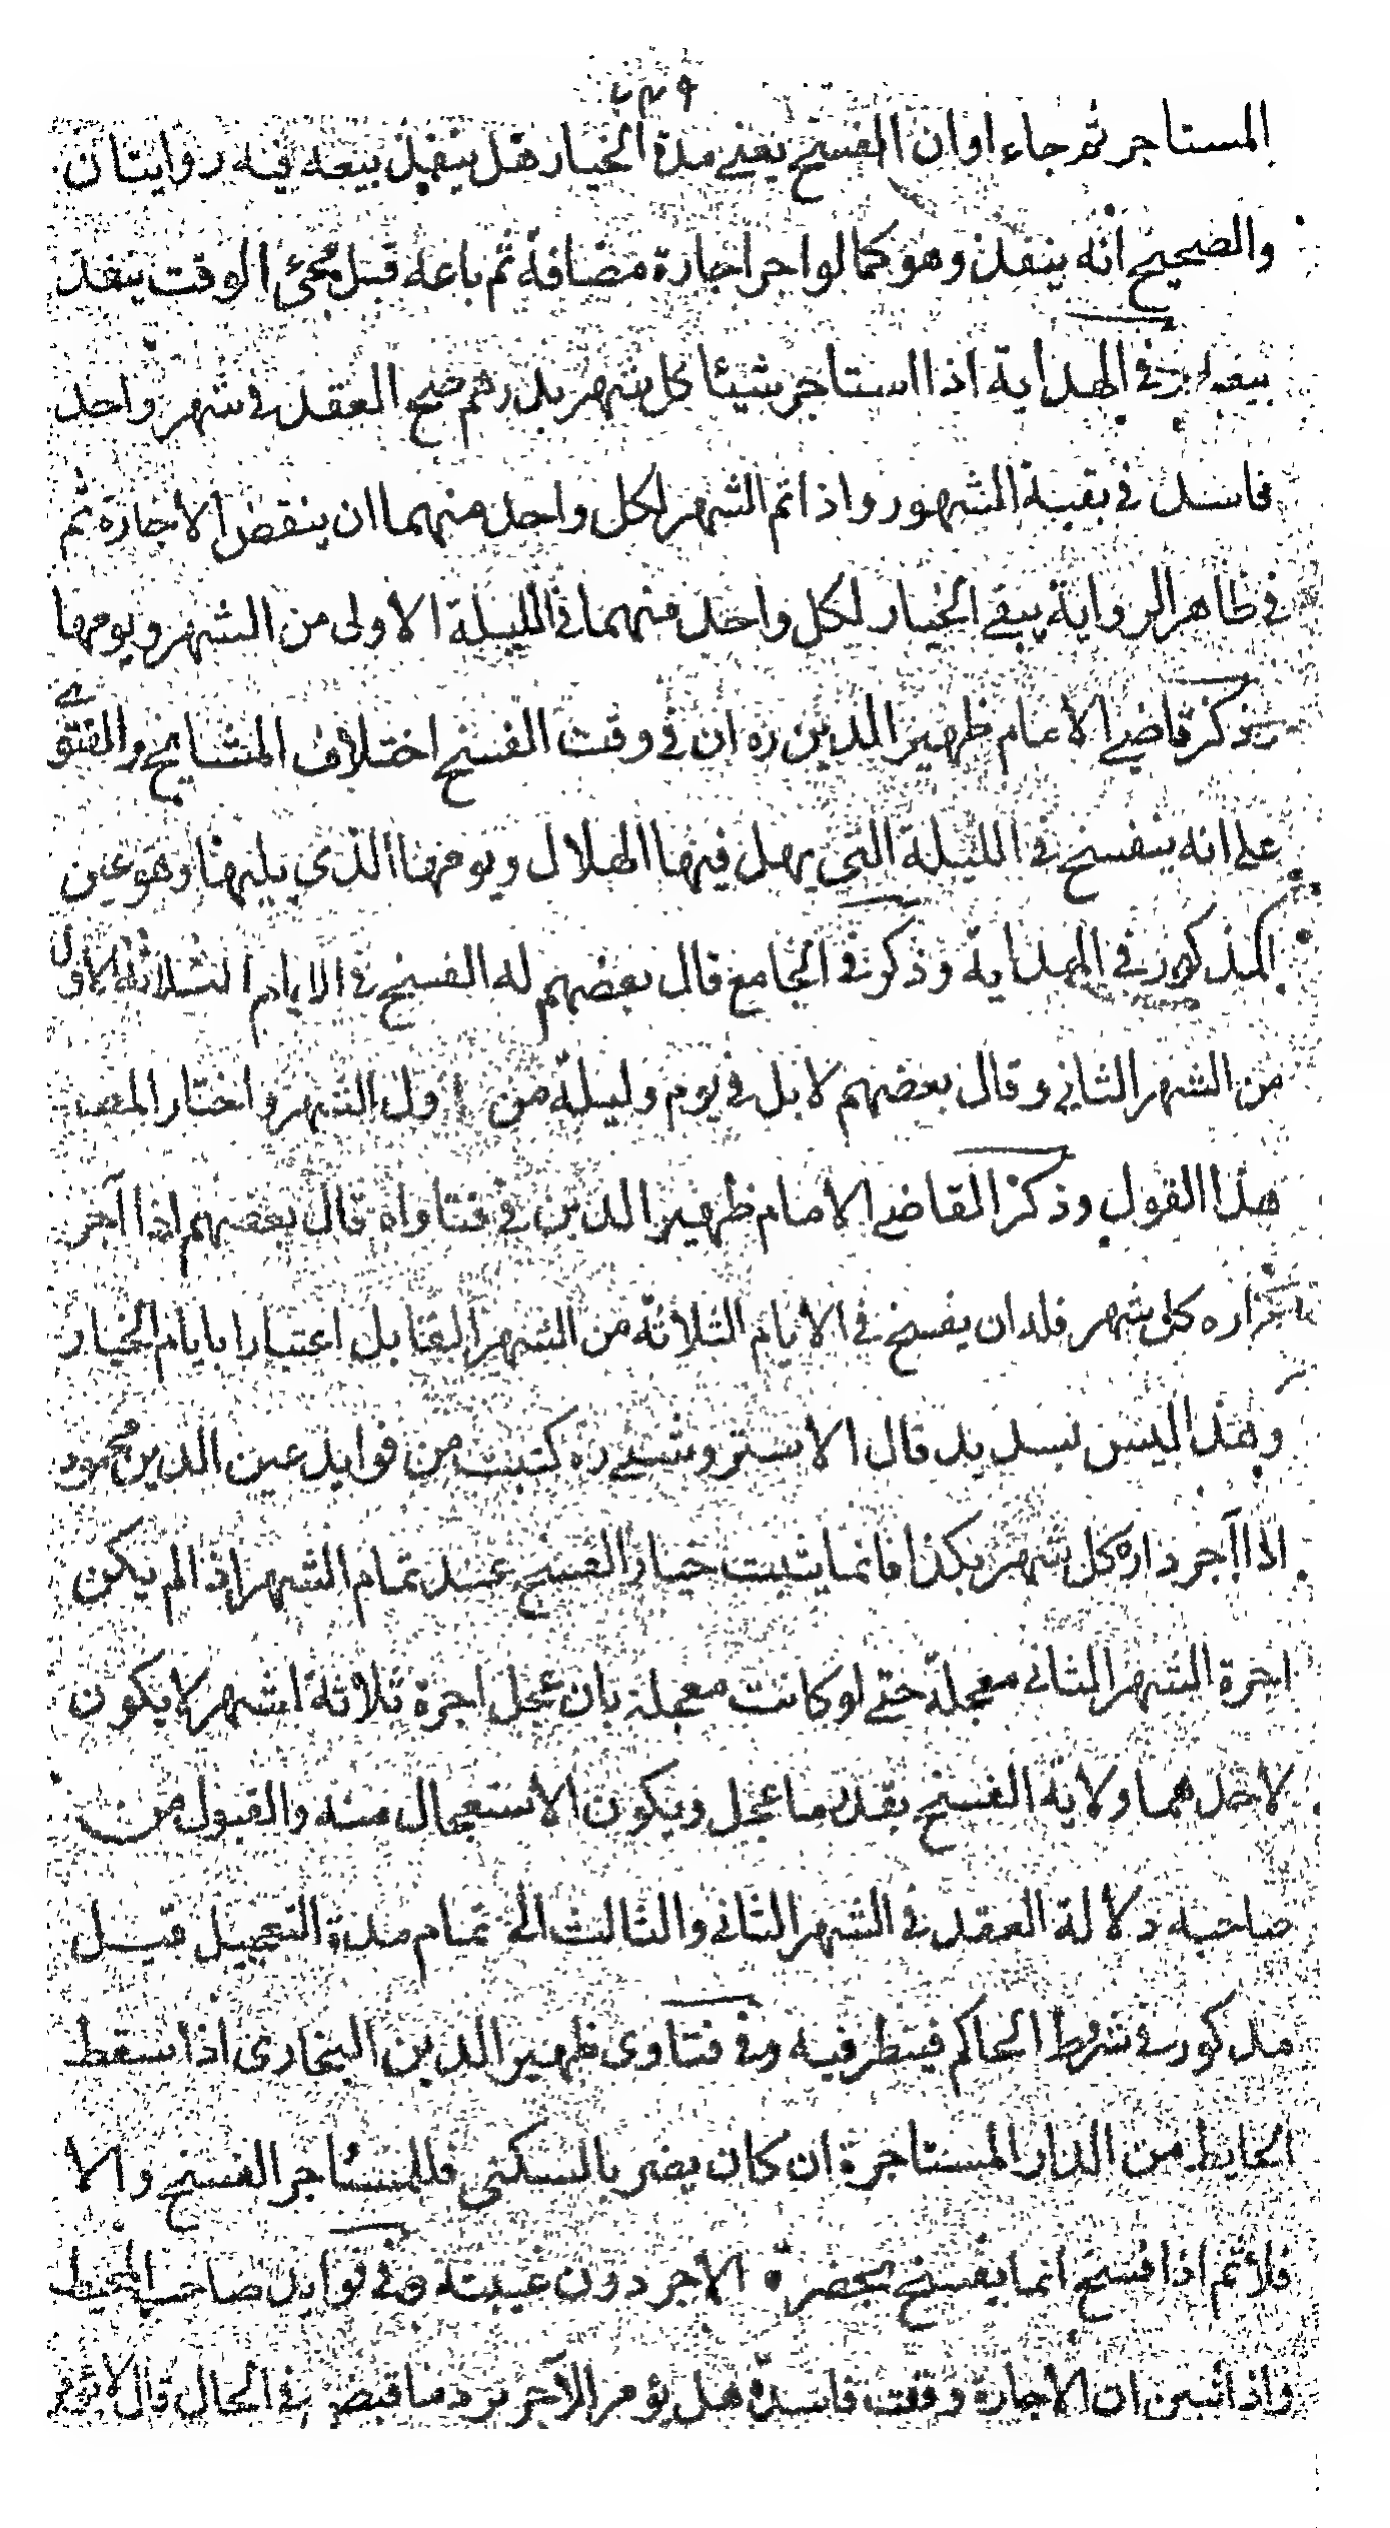 المستاجر ثم جاء اوان الفسخ يعني مدة الخيار هل ينفذ بيعه فيه روايتان
والصحيح انه ينفذ وهو كما لو اجر اجارة مضافة ثم باعه قبل مجئ الوقت ينفذ
بيعه في الهداية اذا استاجر شيئا كل شهر بدرهم صح العقد في شهر واحد
فاسد في بقية الشهور واذا تم الشهر لكل واحد منهما ان ينقض الاجارة ثم
في ظاهر الرواية يبقى الخيار لكل واحد منهما في الليلة الاولى من الشهر ويومها
ذكر قاضي الامام ظهير الدين ره ان في وقت الفسخ اختلاف المشايخ والفتوى
على انه ينفسخ في الليلة التي يهل فيها الهلال ويومها الذي يليها وهو عين
المذكور في الهداية وذكر في الجامع قال بعضهم له الفسخ في الايام الثلاثة الاول
من الشهر الثاني وقال بعضهم لا بل في يوم وليلة من اول الشهر واختار المصـ
هذا القول وذكر القاضي الامام ظهير الدين في فتاواه قال بعضهم اذا آجر
داره كل شهر فله ان يفسخ في الايام الثلاثة من الشهر القابل اعتبارا بايام الخيار
وهذا ليس بسديد قال الاستروشني ره كتبت من فوايد عين الدين محمود
اذا آجر داره كل شهر بكذا فانما يثبت خيار الفسخ عند تمام الشهر اذا لم يكن
اجرة الشهر الثاني معجلة حتى لو كانت معجلة بان عجل اجرة ثلاثة اشهر لا يكون
لاحدهما ولاية الفسخ بقدر ما عجل ويكون الاستعجال منه والقبول من
صاحبه دلالة العقد في الشهر الثاني والثالث الى تمام مدة التعجيل قيل
مذكور في شروط الحاكم فينظر فيه وفي فتاوى ظهير الدين البخارى اذا سقط
الحايط من الدار المستاجرة ان كان يضر بالسكنى فللمستاجر الفسخ والا
فلا ثم اذا فسخ انما يفسخ بحضرة الاجر دون غيبته وفي فوايد صاحب المحيط
واذا تبين ان الاجارة وقعت فاسدة هل يؤمر الآجر برد ما قبض في الحال قال